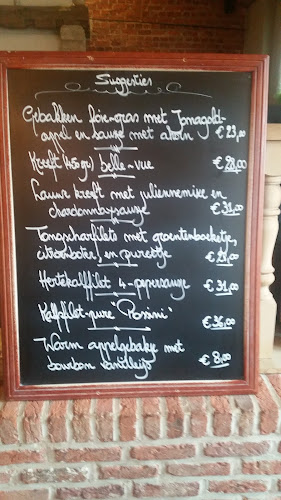 Suggesties
Gebakken foie-gras met Jonagold-
appel en sauze met ahorn € 23,00
Kreeft (450gr) belle-vue € 28,00
Lauwe kreft met juliennemixe en
chardonnaysauze € 31,00
Tongscharfilets met groentenboeketje,
citroenboter, en pureetje € 29,00
Hertekalffilet 4-pepersauze € 31,00
Kalfsfilet-pure "Porsini" € 26,00
Warm appelgebakje met
bourbon vanilleijs € 8,00